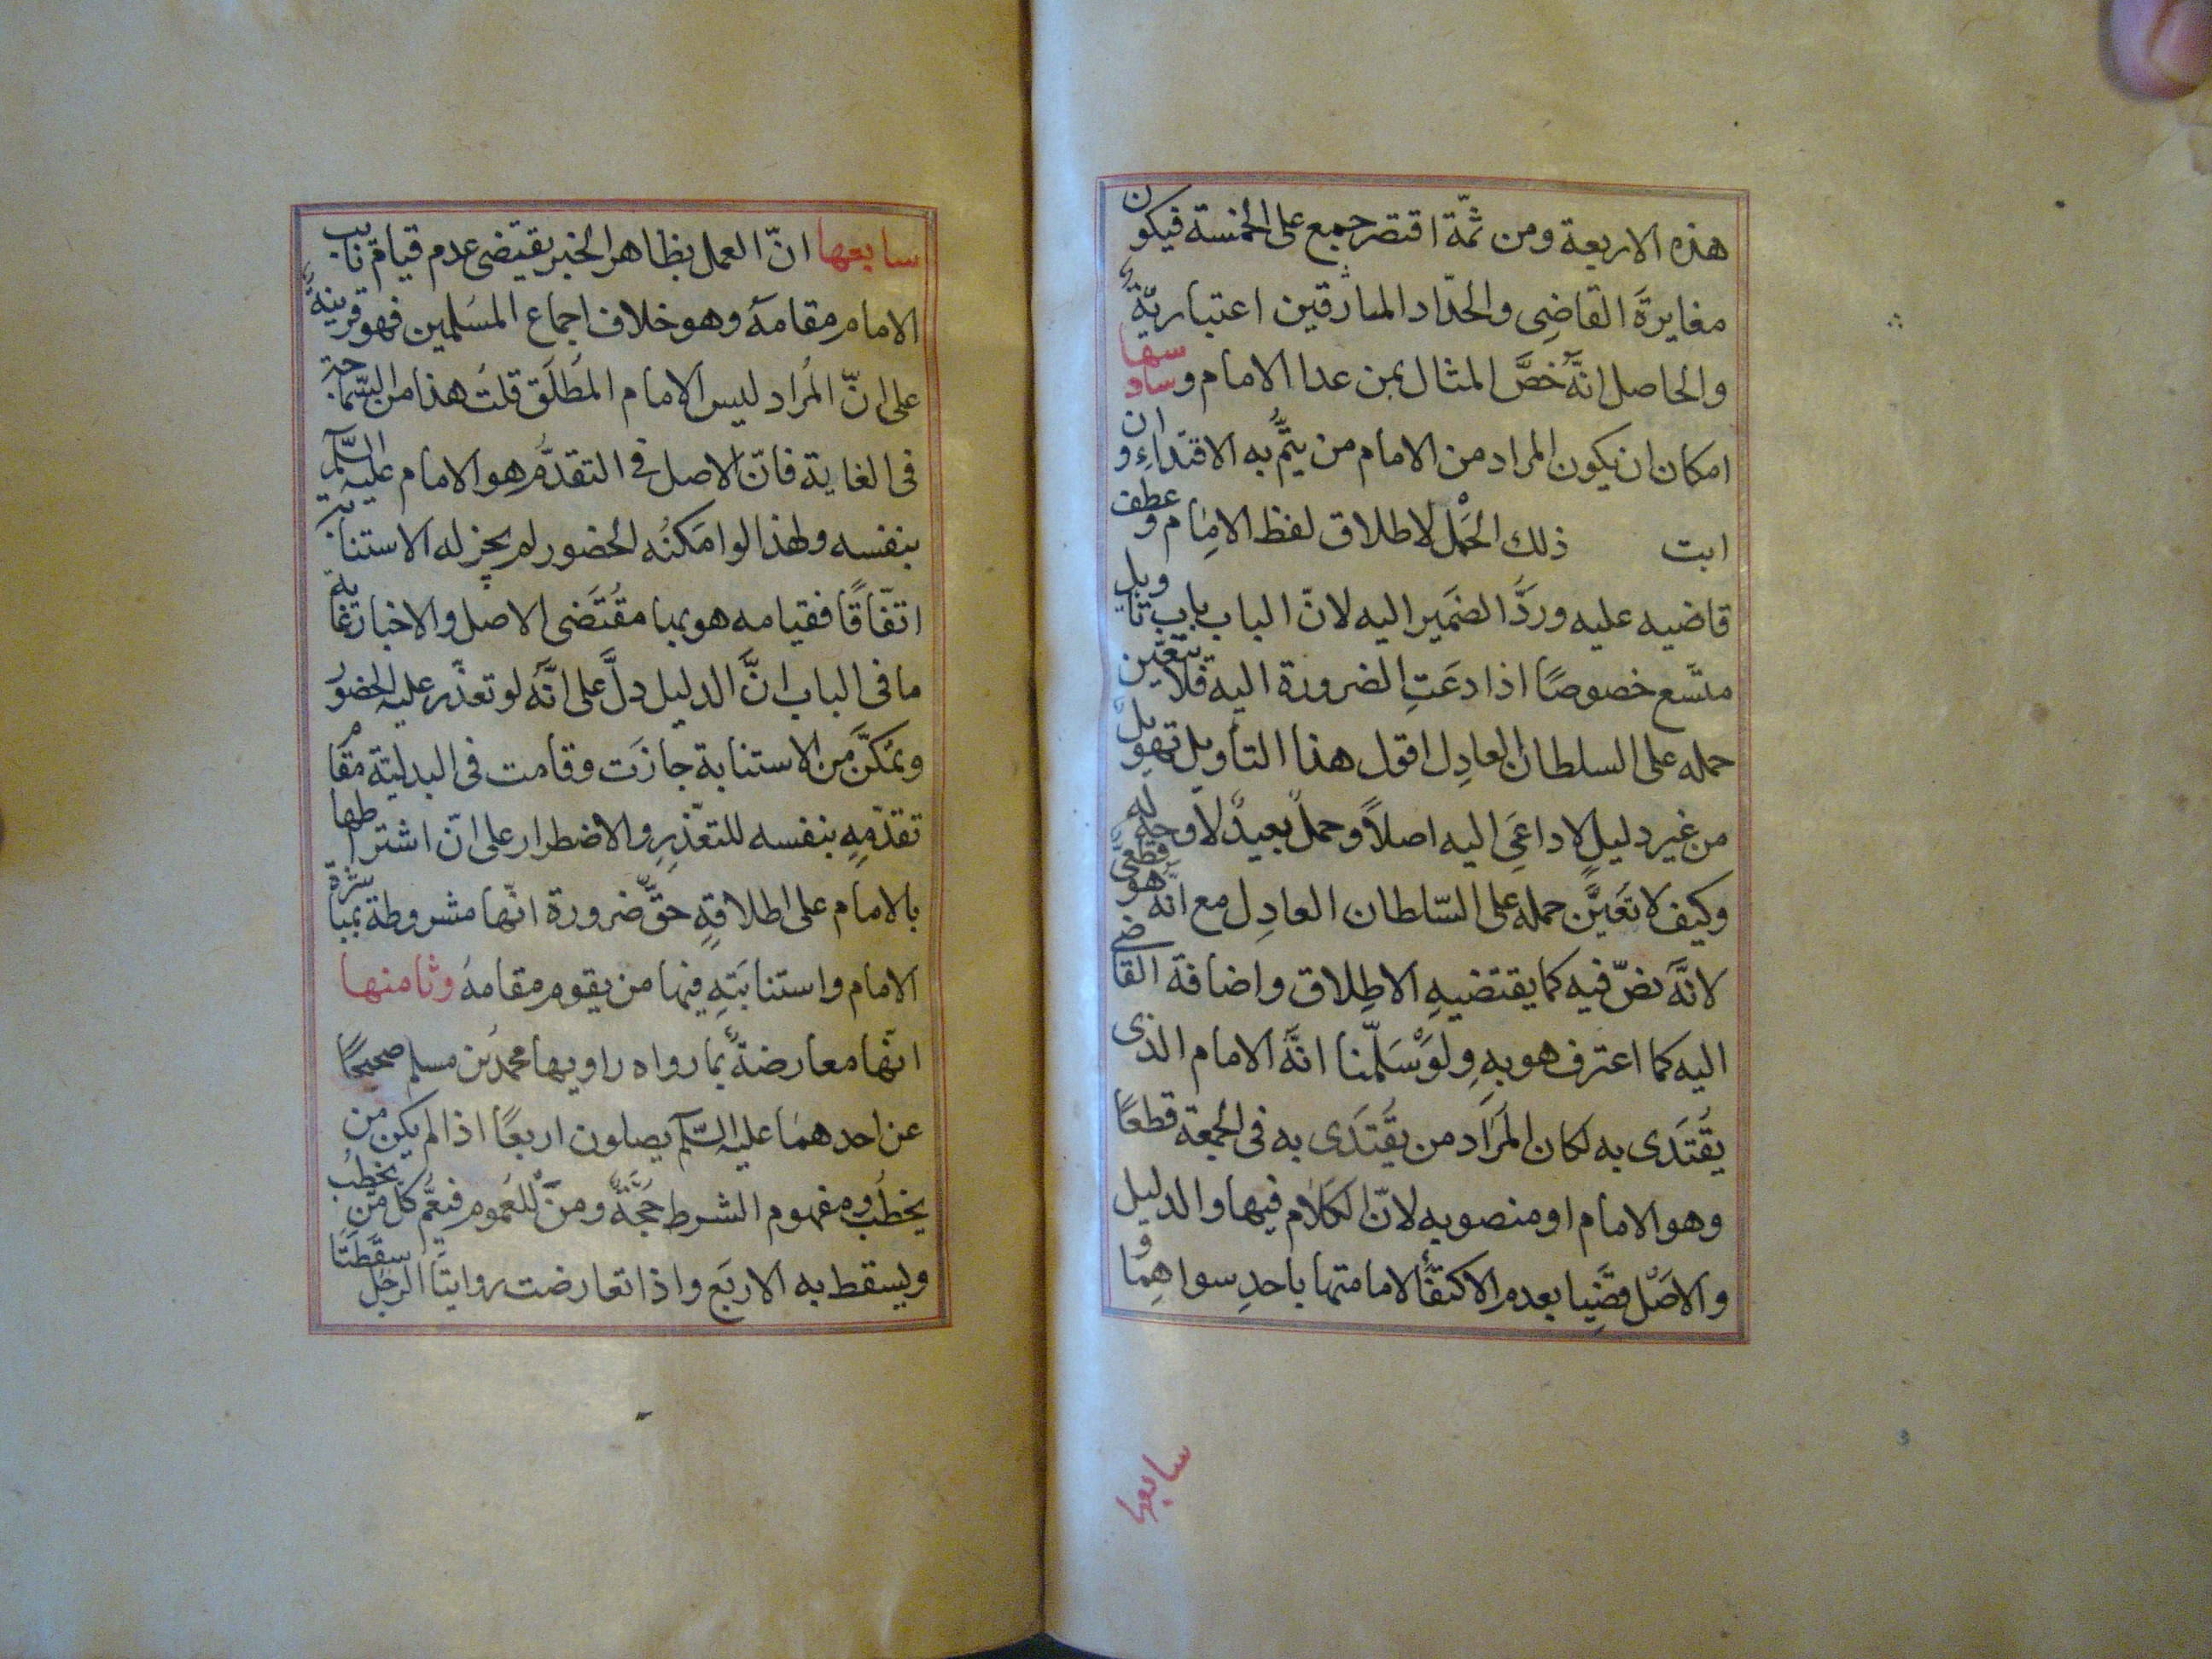 هذه الاربعة ومن ثمّة اقتصر جمع على الخمسة فيكون
مغايرةَ القاضِى والحدّاد المسارقين اعتباريّةً
والحاصل انّهُ خصَّ المثال بمن عدا الامام وسادسها
امكان ان يكون المراد من الامام من يتمُّ به الاقتداءِ وان
ابت ذلك الحَمْل لاطلاق لفظ الامِام وعطف
قاضيه عليه وردَّ الضمَير اليه لانّ الباب باب تاويل
متسَّع خصوصًا اذا دعَتِ الضرورة اليه فلا يتعيّن
حمله على السلطان العادِل اقول هذا التأويل تهويل
من غير دليلٍ لا داعَىِ اليه اصلاً وحملٌ بعيدٌ لا وجه له
وكيف لا تعَيَّن حمله على السّلطان العادِل مع انّه هو قطعىٌّ
لانَّه نصّ فيه كما يقتضيهِ الاطِلاق واضافة القاضى
اليه كما اعترف هو بهِ ولَوْ سَلّمنا انَّه الامام الذى
يقُتَدى به لكان المُرَاد من يقُتَدَى به فى الجمعة قطعًا
وهو الامام او منصوبه لانّ الكلام فيها والدليل
والاصَل قضَيا بعدم الاكتفأ لامامتها باحدِ سواهِما و
سابعها
سابعها انّ العمل بظاهر الخبر يقتضى عدم قيام نايب
الامام مقامهَ وهو خلاف اجماع المسَلمين فهو قرينةٌ
على انّ المُراد ليس الامام المطُلَق قلتُ هذا من السّماجة
فى الغاية فانّ الاصل فى التقدُّم هو الامام عليه السّلم
بنفسه ولهذا لو امَكنُه الحضور لم يجز له الاستنابة
اتفّاقًا فقيامه هو بها مقُتَضى الاصل والاخبار غاية
ما فى الباب انَّ الدليل دلَّ على انَّه لو تعذّر عليه الحضوُر
وتمكَّن من الاستنابة جازَت وقامت فى البدليّة مقام
تقدّمهِ بنفسه للتعّذرِ والاضطرار على انّ اشتراطها
بالامام على اطلاقهِ حقٌّ ضرورة انّها مشروطة بمباشرة
الامام واستنابَتهِ فيها من يقوم مقامهُ وثامنها
انّها معارضةٌ بما رواه راويها محمدُ بن مسلم صحيحًا
عن احدهما عليه السّلم يصلون اربعًا اذا لم يكن من
يخطُب ومفهوم الشرط حُجّةٌ ومنْ للعُموم فيعُم كلّ من يخطب
ويسقط به الاربَع واذا تعارضت روايتَا الرجُل سقَطتَا